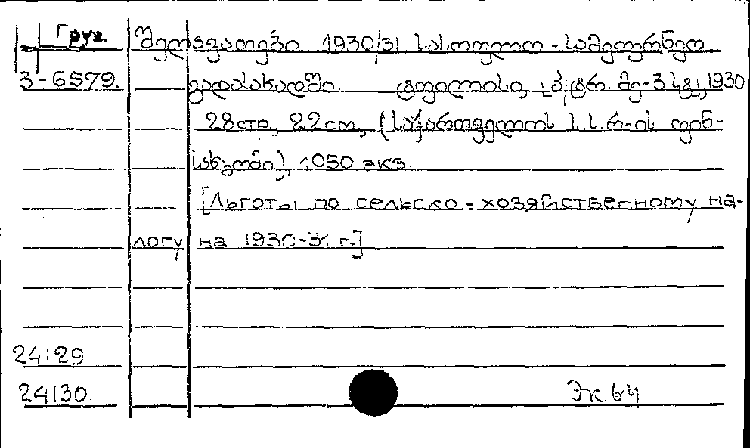 Груз.
შეღავათები 1930/31 სასოფლო-სამეურნეო
3-6579. გადასახადში. ტფილისი, პ/ტრ. მე-3 სტ, 1930
28 სტრ, 22 cm, (საქართველოს ს.ს.რ-ის ფინ-
სახკომი), 1050 экз.
[Льготы по сельско-хозяйственному на-
логу на 1930-31 г.]
24129
24130. Эк 64